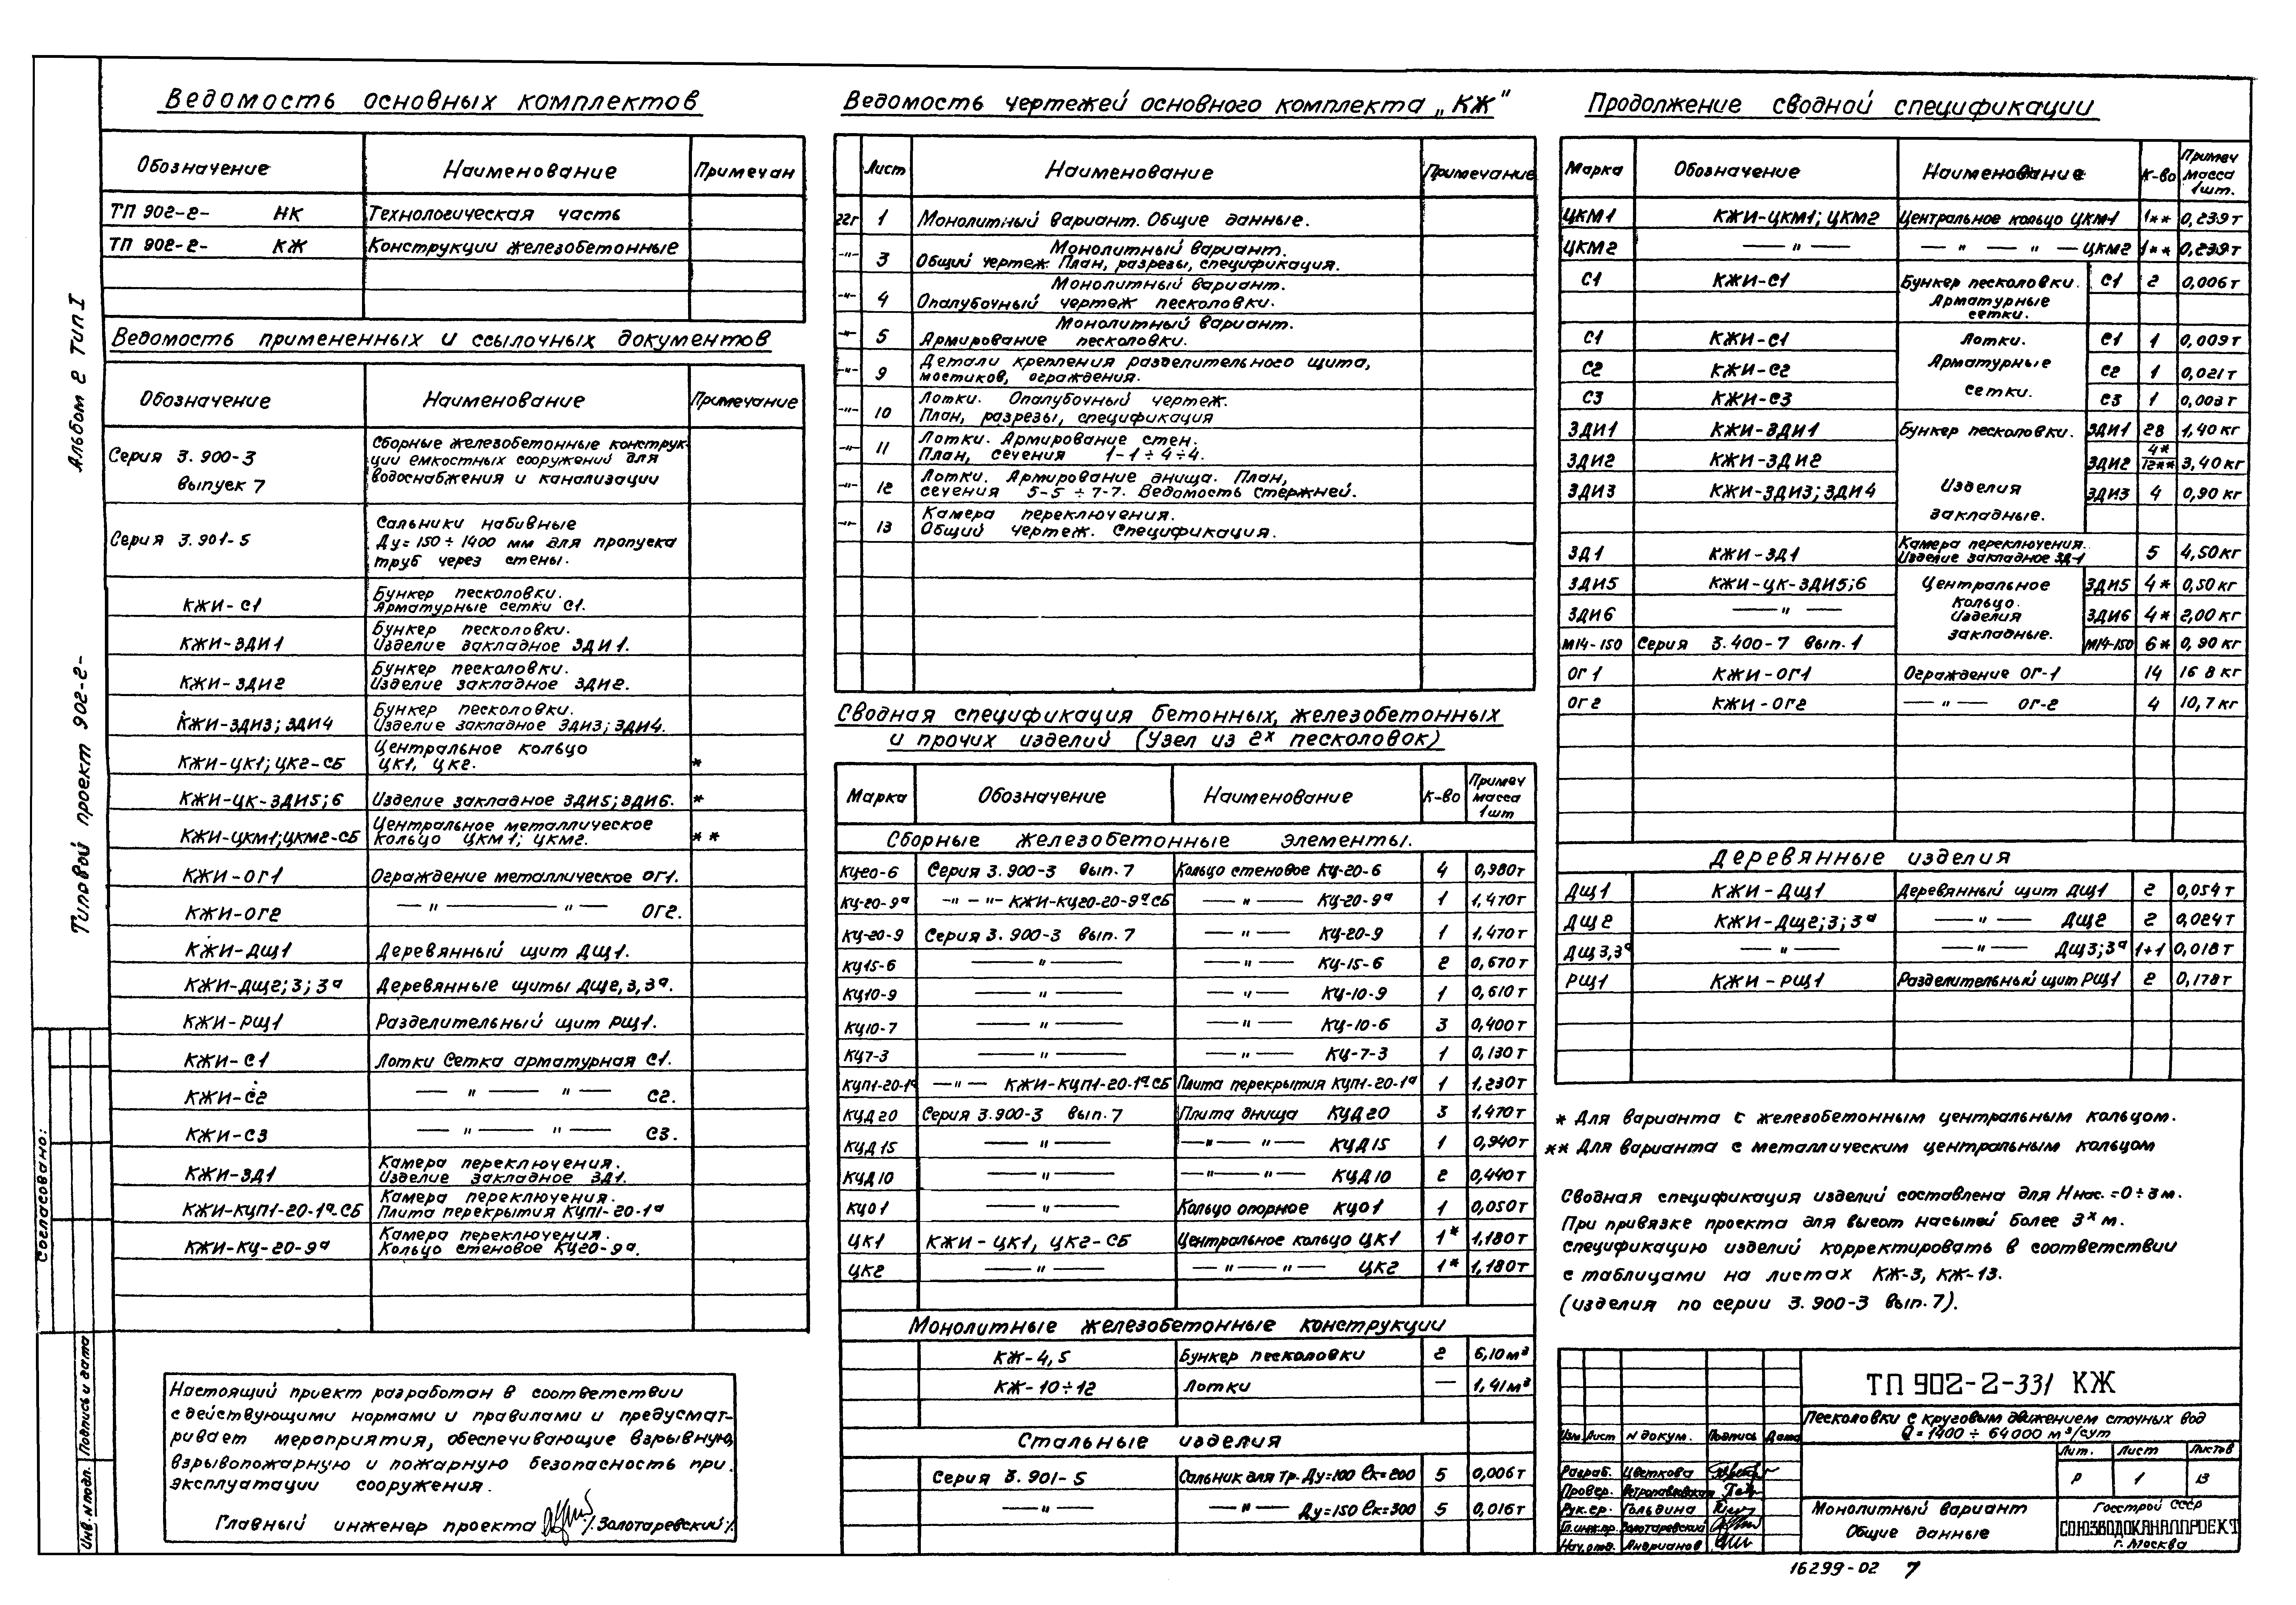 Альбом 2 Тип I
Типовой проект 902-2-
Согласовано:
Инв. N подл. Подпись и дата
Ведомость основных комплектов
Обозначение Наименование Примечан
ТП 902-2- НК Технологическая часть
ТП 902-2- КЖ Конструкции железобетонные
Ведомость примененных и ссылочных документов
Обозначение Наименование Примечание
Серия 3.900-3 выпуск 7 Сборные железобетонные конструк-
ции емкостных сооружений для
водоснабжения и канализации
Серия 3.901-5 Сальники набивные
Ду=150÷1400 мм для пропуска
труб через стены.
КЖИ-С1 Бункер песколовки.
Арматурные сетки С1.
КЖИ-ЗДИ1 Бункер песколовки.
Изделие закладное ЗДИ1.
КЖИ-ЗДИ2 Бункер песколовки.
Изделие закладное ЗДИ2.
КЖИ-ЗДИ3; ЗДИ4 Бункер песколовки.
Изделие закладное ЗДИ3; ЗДИ4.
КЖИ-ЦК1; ЦК2-СБ Центральное кольцо
ЦК1, ЦК2. *
КЖИ-ЦК-ЗДИ5;6 Изделие закладное ЗДИ5; ЗДИ6. *
КЖИ-ЦКМ1;ЦКМ2-СБ Центральное металлическое
кольцо ЦКМ1; ЦКМ2. **
КЖИ-ОГ1 Ограждение металлическое ОГ1.
КЖИ-ОГ2 — " — " — ОГ2.
КЖИ-ДЩ1 Деревянный щит ДЩ1.
КЖИ-ДЩ2; 3; 3а Деревянные щиты ДЩ2, 3, 3а.
КЖИ-РЩ1 Разделительный щит РЩ1.
КЖИ-С1 Лотки Сетка арматурная С1.
КЖИ-С2 — " — " — С2.
КЖИ-С3 — " — " — С3.
КЖИ-ЗД1 Камера переключения.
Изделие закладное ЗД1.
КЖИ-КЦП1-20-1а-СБ Камера переключения.
Плита перекрытия КЦП1-20-1а
КЖИ-КЦ-20-9а Камера переключения.
Кольцо стеновое КЦ20-9а.
Настоящий проект разработан в соответствии
с действующими нормами и правилами и предусмат-
ривает мероприятия, обеспечивающие взрывную,
взрывопожарную и пожарную безопасность при
эксплуатации сооружения.
Главный инженер проекта /Золотаревский/
Ведомость чертежей основного комплекта „КЖ"
Лист Наименование Примечание
22г 1 Монолитный вариант. Общие данные.
-"- 3 Монолитный вариант.
Общий чертеж. План, разрезы, спецификация.
-"- 4 Монолитный вариант.
Опалубочный чертеж песколовки.
-"- 5 Монолитный вариант.
Армирование песколовки.
-"- 9 Детали крепления разделительного щита,
мостиков, ограждения.
-"- 10 Лотки. Опалубочный чертеж.
План, разрезы, спецификация
-"- 11 Лотки. Армирование стен.
План, сечения 1-1÷4÷4.
-"- 12 Лотки. Армирование днища. План,
сечения 5-5÷7-7. Ведомость стержней.
-"- 13 Камера переключения.
Общий чертеж. Спецификация.
Сводная спецификация бетонных, железобетонных
и прочих изделий (Узел из 2х песколовок)
Марка Обозначение Наименование К-во Примеч масса 1шт
Сборные железобетонные элементы.
КЦ20-6 Серия 3.900-3 вып. 7 Кольцо стеновое КЦ-20-6 4 0,980т
КЦ-20-9а -"-"- КЖИ-КЦ20-20-9а СБ — " — КЦ-20-9а 1 1,470т
КЦ-20-9 Серия 3.900-3 вып. 7 — " — КЦ-20-9 1 1,470т
КЦ15-6 — " — — " — КЦ-15-6 2 0,670т
КЦ10-9 — " — — " — КЦ-10-9 1 0,610т
КЦ10-7 — " — — " — КЦ-10-6 3 0,400т
КЦ7-3 — " — — " — КЦ-7-3 1 0,130т
КЦП1-20-1а — " — КЖИ-КЦП1-20-1а СБ Плита перекрытия КЦП1-20-1а 1 1,230т
КЦД20 Серия 3.900-3 вып. 7 Плита днища КЦД20 3 1,470т
КЦД15 — " — — " — " — КЦД15 1 0,940т
КЦД10 — " — — " — " — КЦД10 2 0,440т
КЦО1 — " — Кольцо опорное КЦО1 1 0,050т
ЦК1 КЖИ-ЦК1, ЦК2-СБ Центральное кольцо ЦК1 1* 1,180т
ЦК2 — " — — " — " — ЦК2 1* 1,180т
Монолитные железобетонные конструкции
КЖ-4,5 Бункер песколовки 2 6,10м³
КЖ-10÷12 Лотки — 1,41м³
Стальные изделия
Серия 3.901-5 Сальник для тр. Ду=100 ℓк=200 5 0,006т
— " — — " — Ду=150 ℓк=300 5 0,016т
Продолжение сводной спецификации
Марка Обозначение Наименование К-во Примеч масса 1шт.
ЦКМ1 КЖИ-ЦКМ1; ЦКМ2 Центральное кольцо ЦКМ1 1** 0,239т
ЦКМ2 — " — — " — " — ЦКМ2 1** 0,239т
С1 КЖИ-С1 Бункер песколовки. Арматурные сетки. С1 2 0,006т
С1 КЖИ-С1 Лотки. С1 1 0,009т
С2 КЖИ-С2 Арматурные С2 1 0,021т
С3 КЖИ-С3 сетки. С3 1 0,003т
ЗДИ1 КЖИ-ЗДИ1 Бункер песколовки. ЗДИ1 28 1,40кг
ЗДИ2 КЖИ-ЗДИ2 ЗДИ2 4* 12** 3,40кг
ЗДИ3 КЖИ-ЗДИ3; ЗДИ4 Изделия ЗДИ3 4 0,90кг
закладные.
ЗД1 КЖИ-ЗД1 Камера переключения. Изделие закладное ЗД-1 5 4,50кг
ЗДИ5 КЖИ-ЦК-ЗДИ5;6 Центральное ЗДИ5 4* 0,50кг
ЗДИ6 — " — кольцо. Изделия ЗДИ6 4* 2,00кг
М14-150 Серия 3.400-7 вып. 1 закладные. М14-150 6* 0,90кг
ОГ1 КЖИ-ОГ1 Ограждение ОГ-1 14 16 8 кг
ОГ2 КЖИ-ОГ2 — " — ОГ-2 4 10,7кг
Деревянные изделия
ДЩ1 КЖИ-ДЩ1 Деревянный щит ДЩ1 2 0,054т
ДЩ2 КЖИ-ДЩ2;3;3а — " — ДЩ2 2 0,024т
ДЩ3,3а — " — — " — ДЩ3;3а 1+1 0,018т
РЩ1 КЖИ-РЩ1 Разделительный щит РЩ1 2 0,178т
* Для варианта с железобетонным центральным кольцом.
** Для варианта с металлическим центральным кольцом
Сводная спецификация изделий составлена для Ннас.=0÷3м.
При привязке проекта для высот насыпей более 3х м.
спецификацию изделий корректировать в соответствии
с таблицами на листах КЖ-3, КЖ-13.
(изделия по серии 3.900-3 вып. 7).
ТП 902-2-331 КЖ
Песколовки с круговым движением сточных вод
Q=1400÷64000 м³/сут
Изм Лист N докум. Подпись Дата
Лит. Лист Листов
Р 1 13
Разраб. Цветкова
Провер. Петропавловская
Рук.гр. Гольдина
Гл.инж.пр. Золотаревский
Нач.отд. Андрианов
Монолитный вариант
Общие данные
Госстрой СССР
СОЮЗВОДОКАНАЛПРОЕКТ
г. Москва
16299-02 7